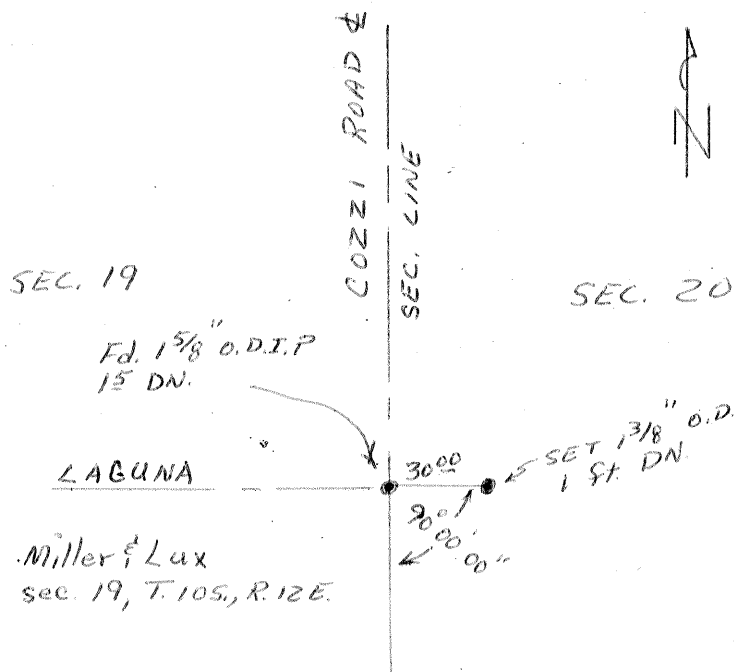 COZZI ROAD ℄
SEC. LINE
N
SEC. 19
SEC. 20
Fd. 1 5/8" O.D.I.P
1 5 DN.
LAGUNA
30 00
SET 1 3/8" O.D.
1 ft. DN.
90° 00' 00"
Miller & Lux
sec. 19, T. 10S., R. 12E.